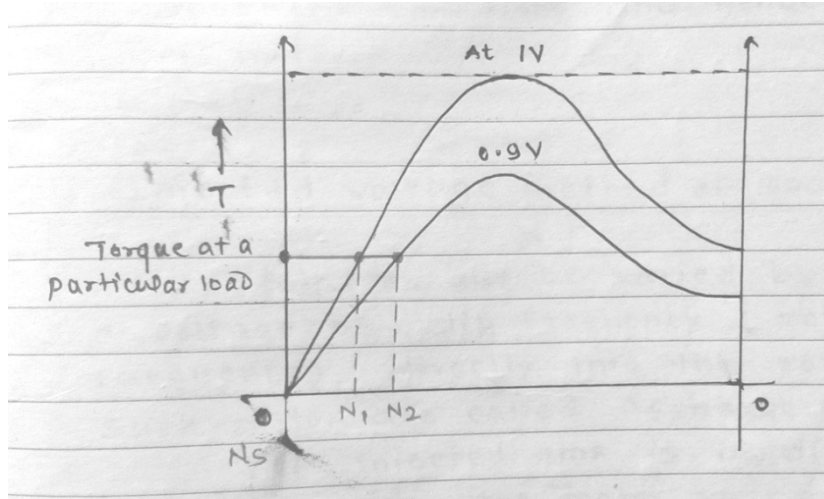 At 1V
0.9V
T
Torque at a
particular load
0
N1
N2
0
Ns